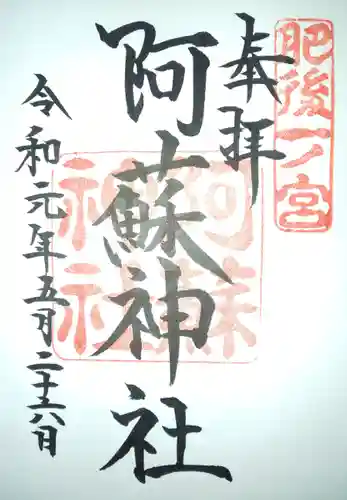 肥後一ノ宮
奉拝
阿蘇神社
阿蘇神社
令和元年五月二十六日